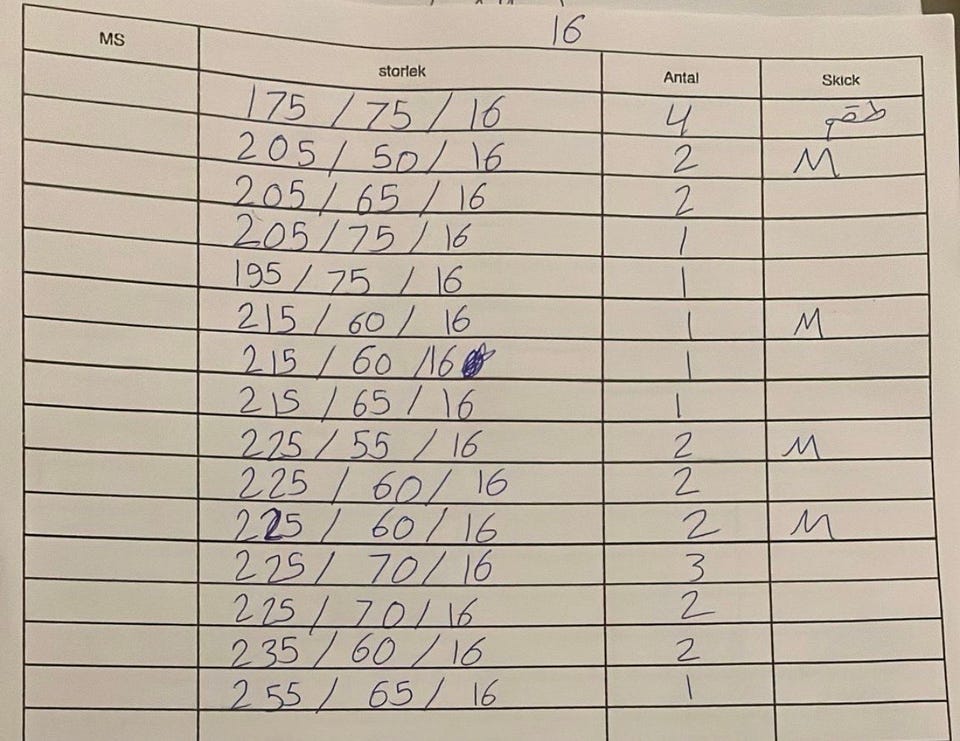 16
MS storlek Antal Skick
175 / 75 / 16 4 طقم
205 / 50 / 16 2 M
205 / 65 / 16 2
205 / 75 / 16 1
195 / 75 / 16 1
215 / 60 / 16 1 M
215 / 60 / 16 1
215 / 65 / 16 1
225 / 55 / 16 2 M
225 / 60 / 16 2
225 / 60 / 16 2 M
225 / 70 / 16 3
225 / 70 / 16 2
235 / 60 / 16 2
255 / 65 / 16 1